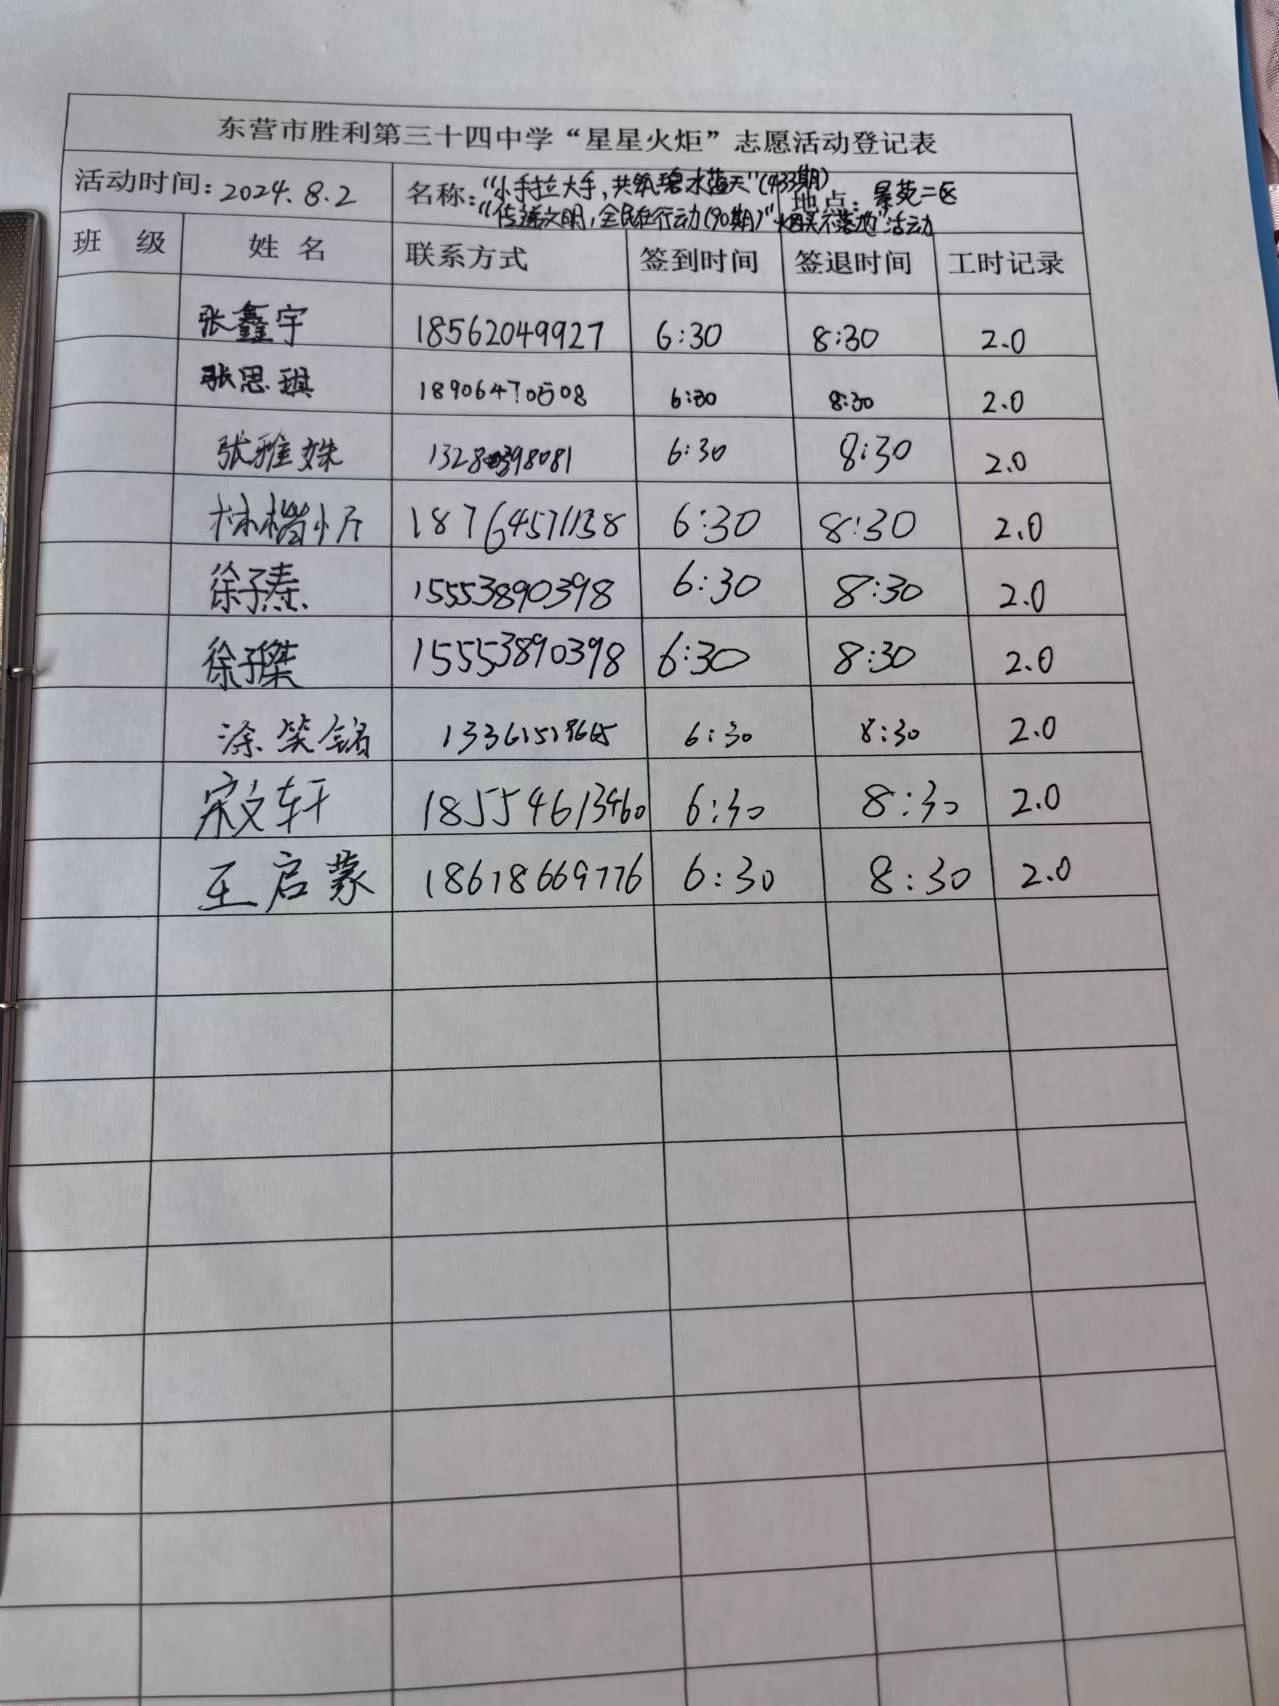 东营市胜利第三十四中学“星星火炬”志愿活动登记表
活动时间:2024.8.2 名称:“小手拉大手,共筑碧水蓝天”(433期) 地点:景苑二区
“传递文明,全民在行动(90期)”“烟头不落地”活动
班 级 姓 名 联系方式 签到时间 签退时间 工时记录
张鑫宇 18562049927 6:30 8:30 2.0
张思琪 18906470508 6:30 8:30 2.0
张雅姝 13280398081 6:30 8:30 2.0
林楷 18764571138 6:30 8:30 2.0
徐子焘 15553890398 6:30 8:30 2.0
徐子桀 15553890398 6:30 8:30 2.0
涂笑铭 6:30 8:30 2.0
宋文轩 18554613460 6:30 8:30 2.0
王启蒙 18678669776 6:30 8:30 2.0